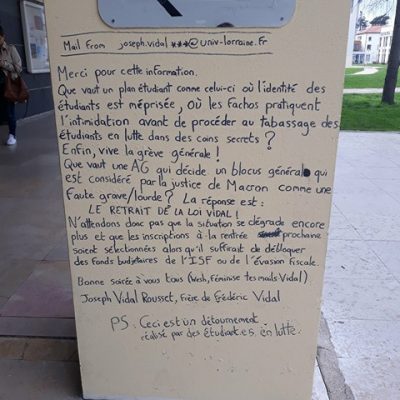 Mail From joseph.vidal ***@univ-lorraine.fr
Merci pour cette information.
Que vaut un plan étudiant comme celui-ci où l'identité des
étudiants est méprisée, où les fachos pratiquent
l'intimidation avant de procéder au tabassage des
étudiants en lutte dans des coins secrets ?
Enfin, vive la grève générale !
Que vaut une AG qui décide un blocus général qui
est considéré par la justice de Macron comme une
faute grave/lourde ? La réponse est :
LE RETRAIT DE LA LOI VIDAL !
N'attendons donc pas que la situation se dégrade encore
plus et que les inscriptions à la rentrée prochaine
soient sélectionnées alors qu'il suffirait de débloquer
des fonds budgétaires de l'ISF ou de l'évasion fiscale.
Bonne soirée à vous tous (Wesh, féminise tes mails Vidal)
Joseph Vidal Rousset, frère de Frédéric Vidal
PS : Ceci est un détournement
réalisé par des étudiant.e.s en lutte.